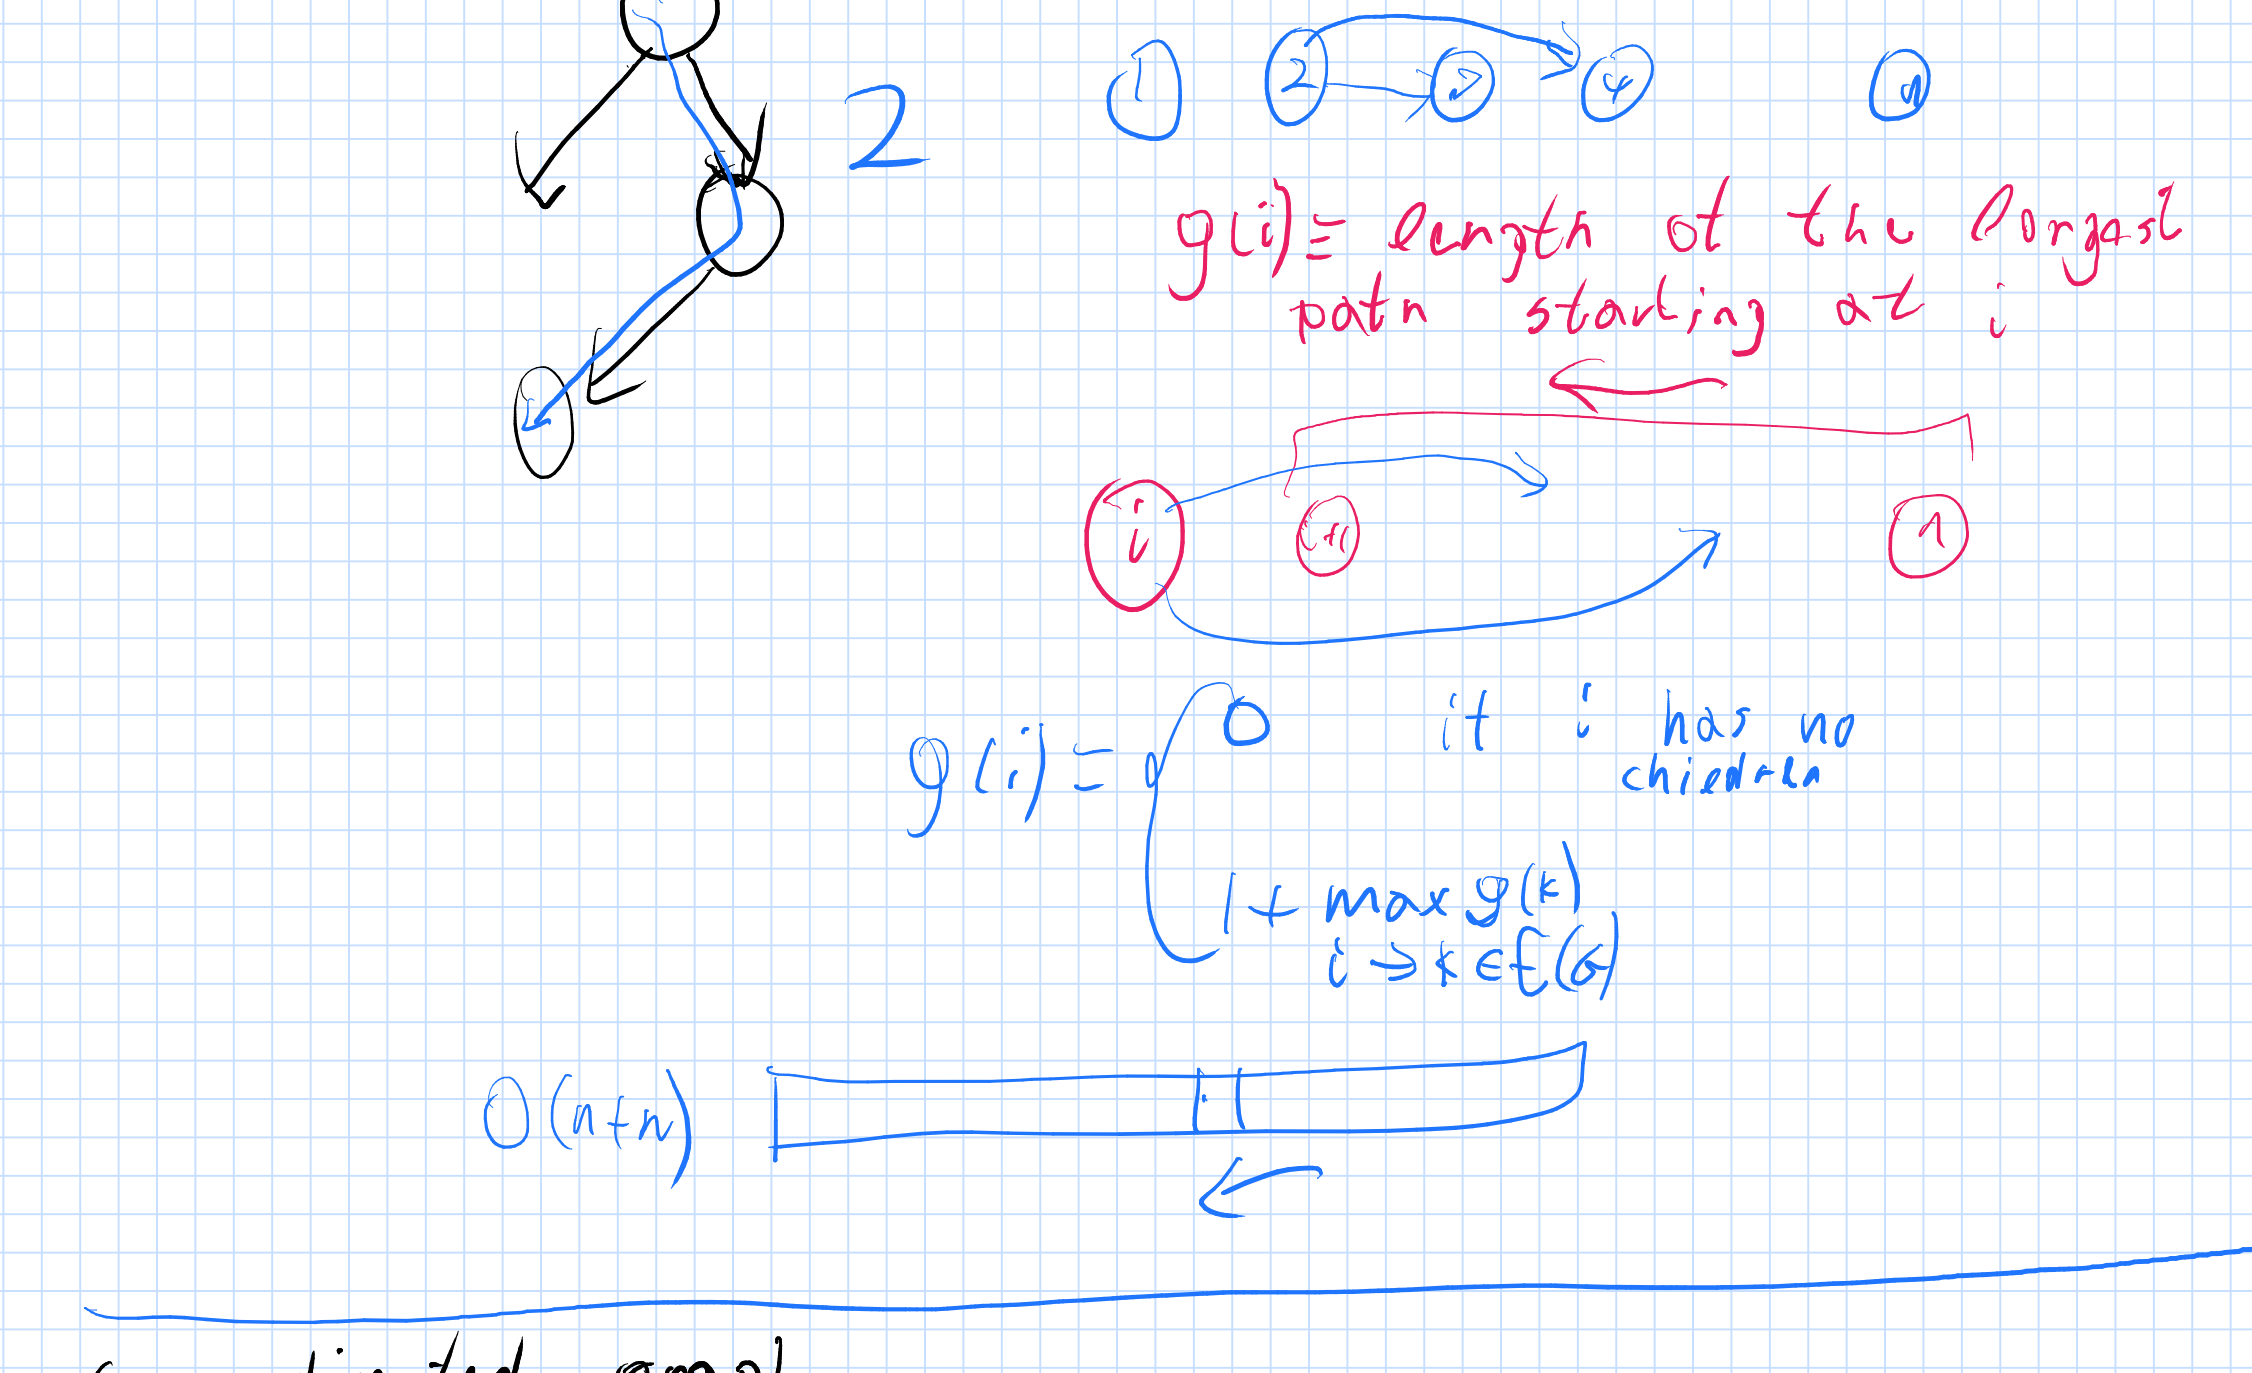 1 2 3 4 n
2
g(i) = length of the longest
path starting at i
i i+1 n
0 if i has no
g(i) =
children
1 + max g(k)
i → k ∈ E(G)
O(n+n)